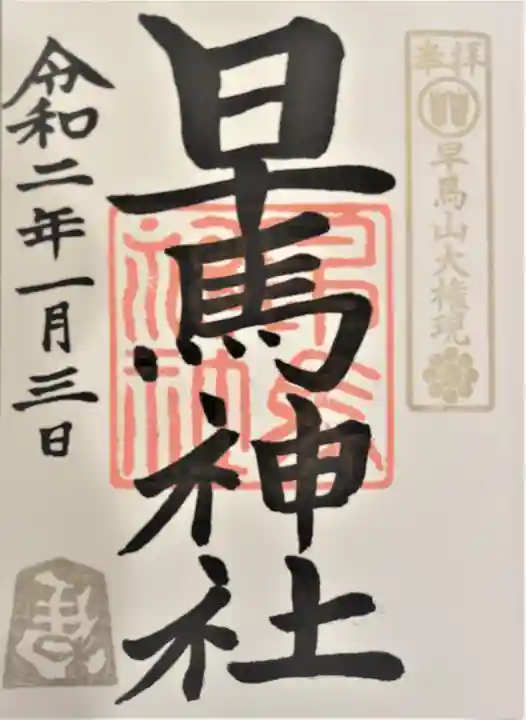 奉拝
早馬山大権現
早馬神社
令和二年一月三日